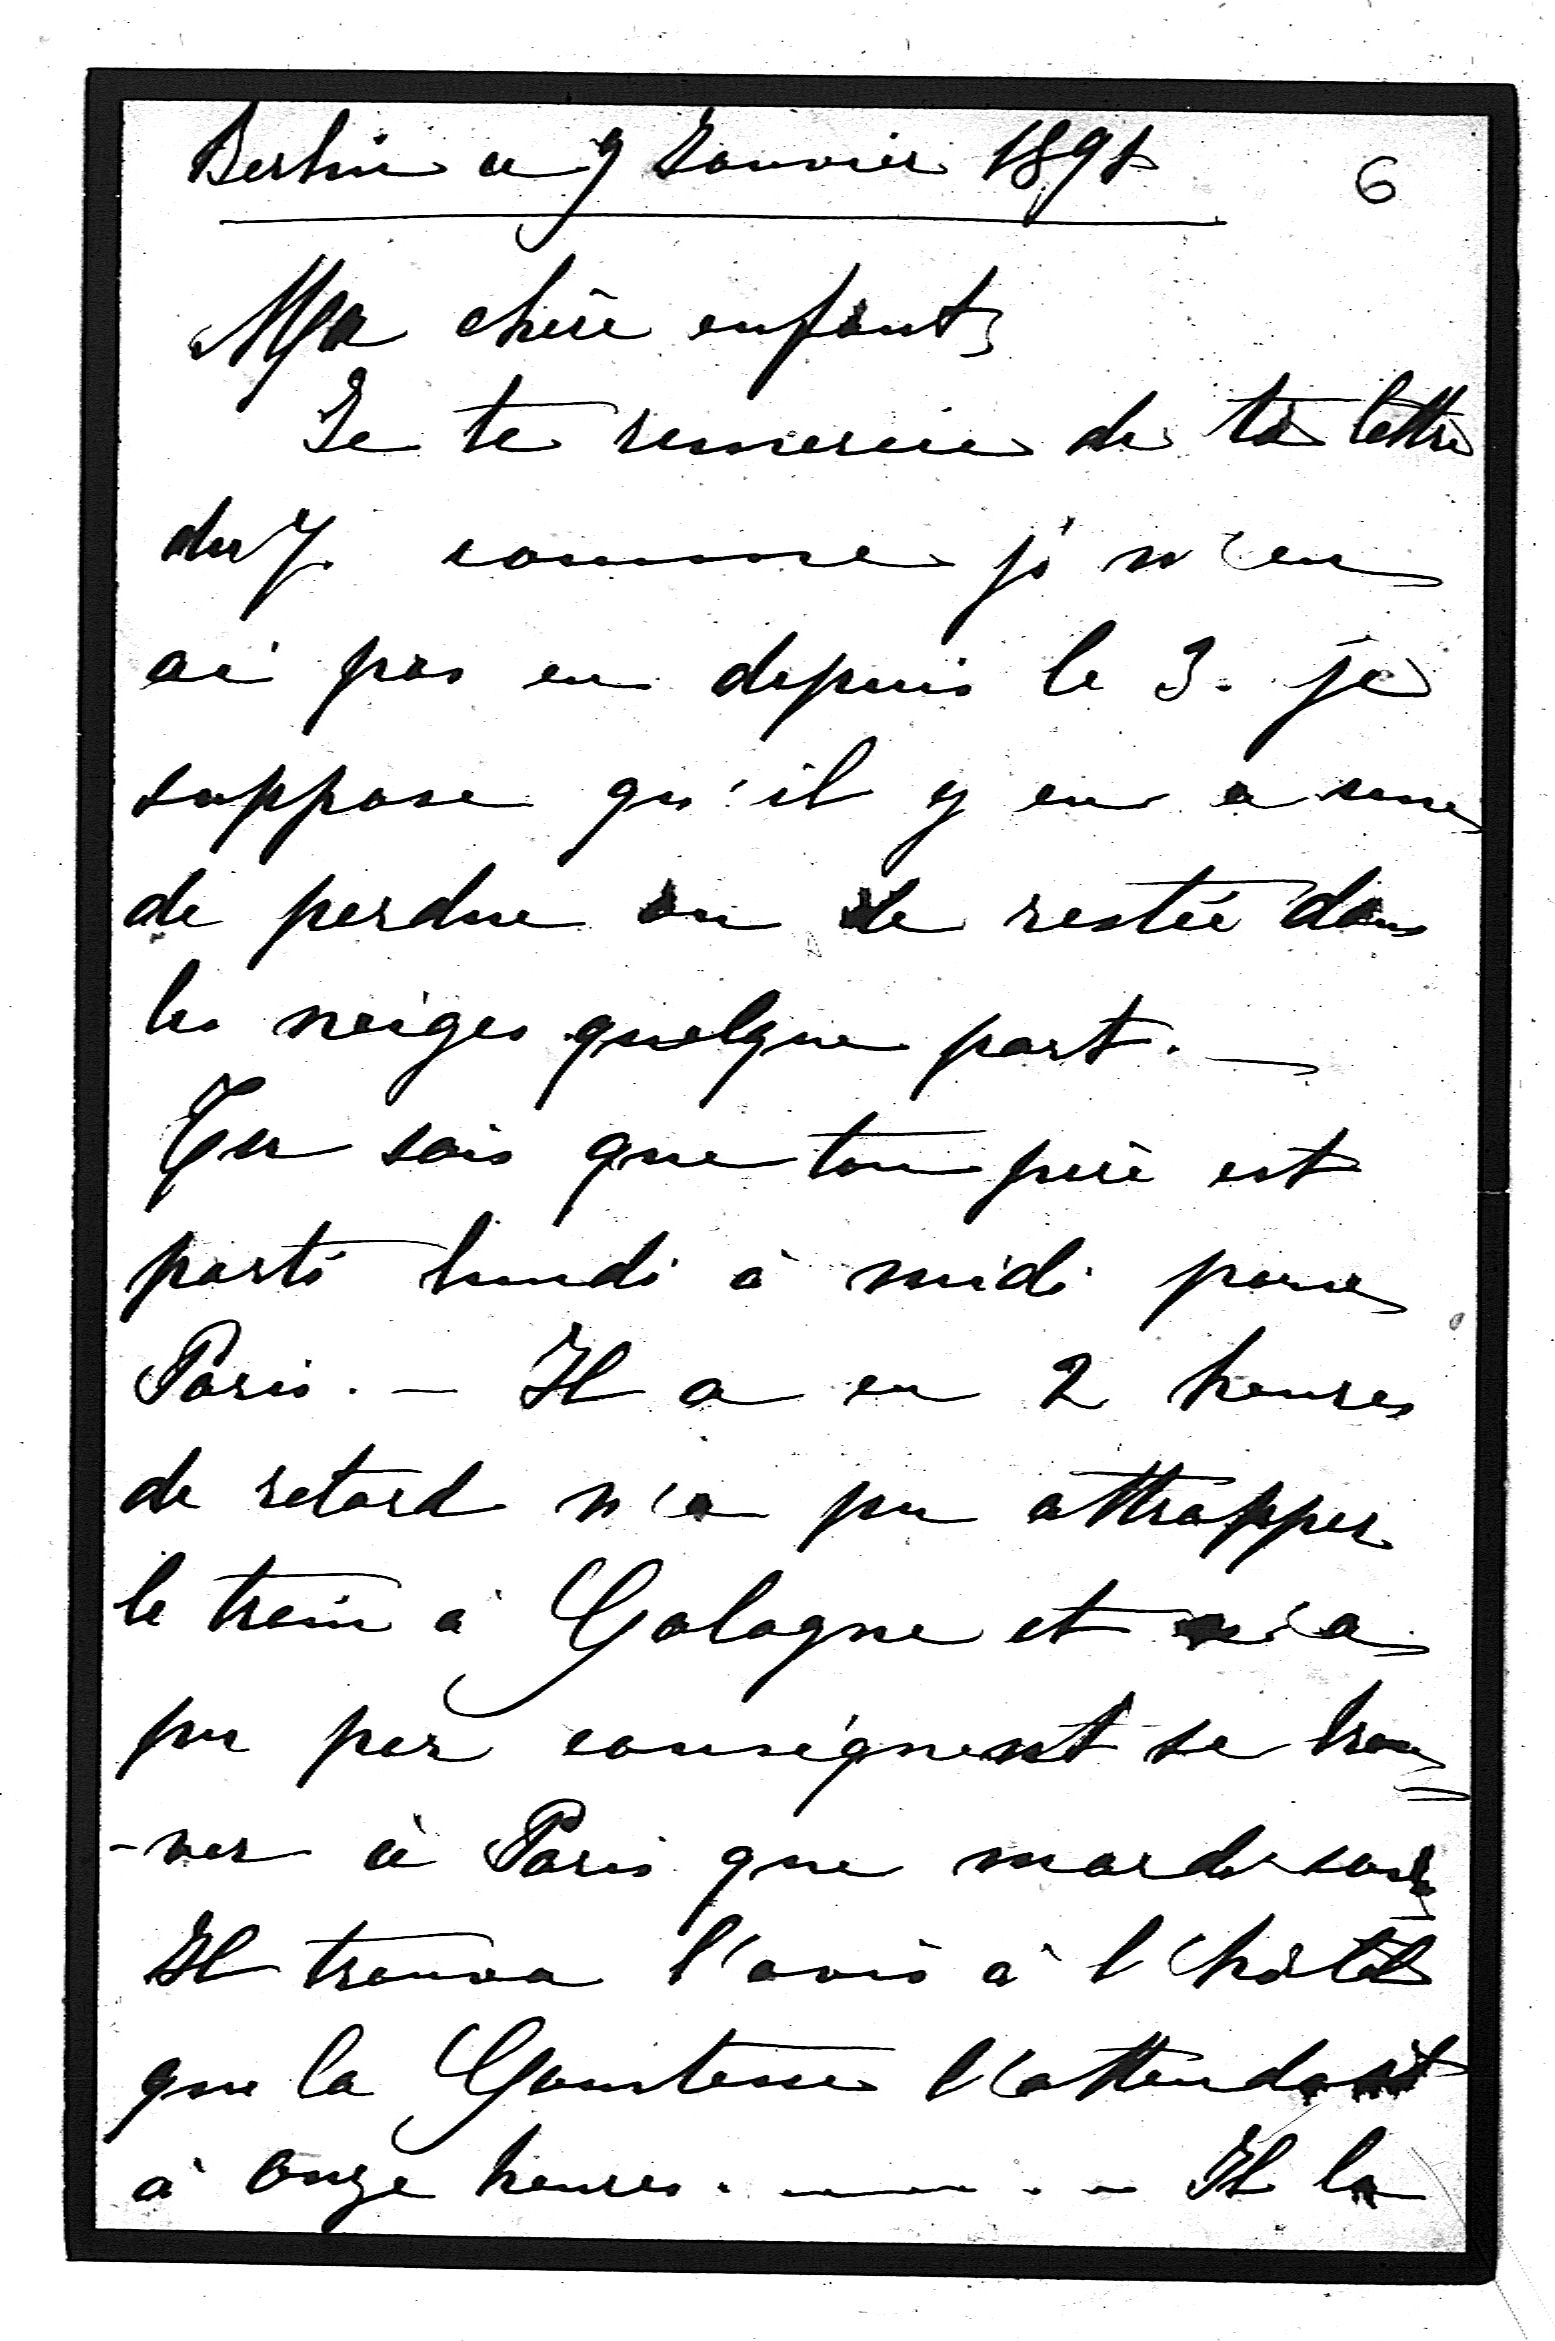 Berlin ce 9 Janvier 1891
6
Ma chère enfant,
Je te remercie de ta lettre
du 7. comme je n'en
ai pas eu depuis le 3. je
suppose qu'il y en a une
de perdue ou de restée dans
les neiges quelque part. —
Tu sais que ton père est
parti lundi à midi pour
Paris. — Il a eu 2 heures
de retard n'a pu attrapper
le train à Cologne et n'a
pu par conséquent se trou-
-ver à Paris que mardi soir
Il trouva l'avis à l'hôtel
que la Comtesse l'attendait
à onze heures. — . — Il la